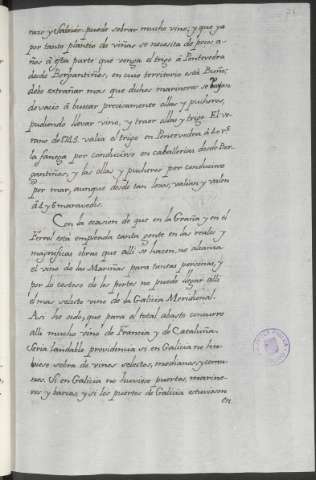 raro y Salnés puede sobrar mucho vino; y que ya
por tanto plantío de viñas se necesita de pocos a-
ños á esta parte que venga el trigo á Pontevedra
desde Bergantiños, en cuio territorio está Buño;
debe extrañar mas que dichos marineros se
de vacío á buscar precisamente ollas y pucheros,
pudiendo llevar vino, y traer ollas y trigo. El ve-
rano de 1745 valía el trigo en Pontevedra á
la fanega por conducirse en caballerías desde Ber-
gantiños, y las ollas y pucheros por conducirse
por mar, aunque desde tan lexos, valían y valen
á 4 y 6 maravedís.
Con la ocasion de que en la Graña y en el
Ferrol está empleada tanta gente en las reales y
magníficas obras que allí se hacen, no alcanza
el vino de las Mariñas para tantas personas, y
por lo costoso de los portes no puede llegar allí
el mas selecto vino de la Galicia Meridional.
Assi ha sido, que para el total abasto concurre
allí mucho vino de Francia y de Cataluña.
Sería laudable providencia si en Galicia no hu-
biese sobra de vinos selectos, medianos, y comu-
nes. Si en Galicia no huviese puertos, marine-
ros y barcos, y si los puertos de Galicia estuviesen
en